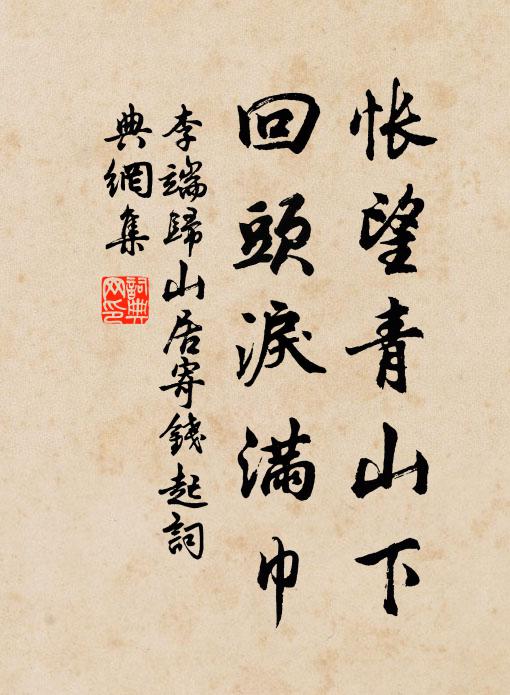 悵望青山下
回頭淚滿巾
李端歸山居寄錢起詞
典網集
詞典
网印